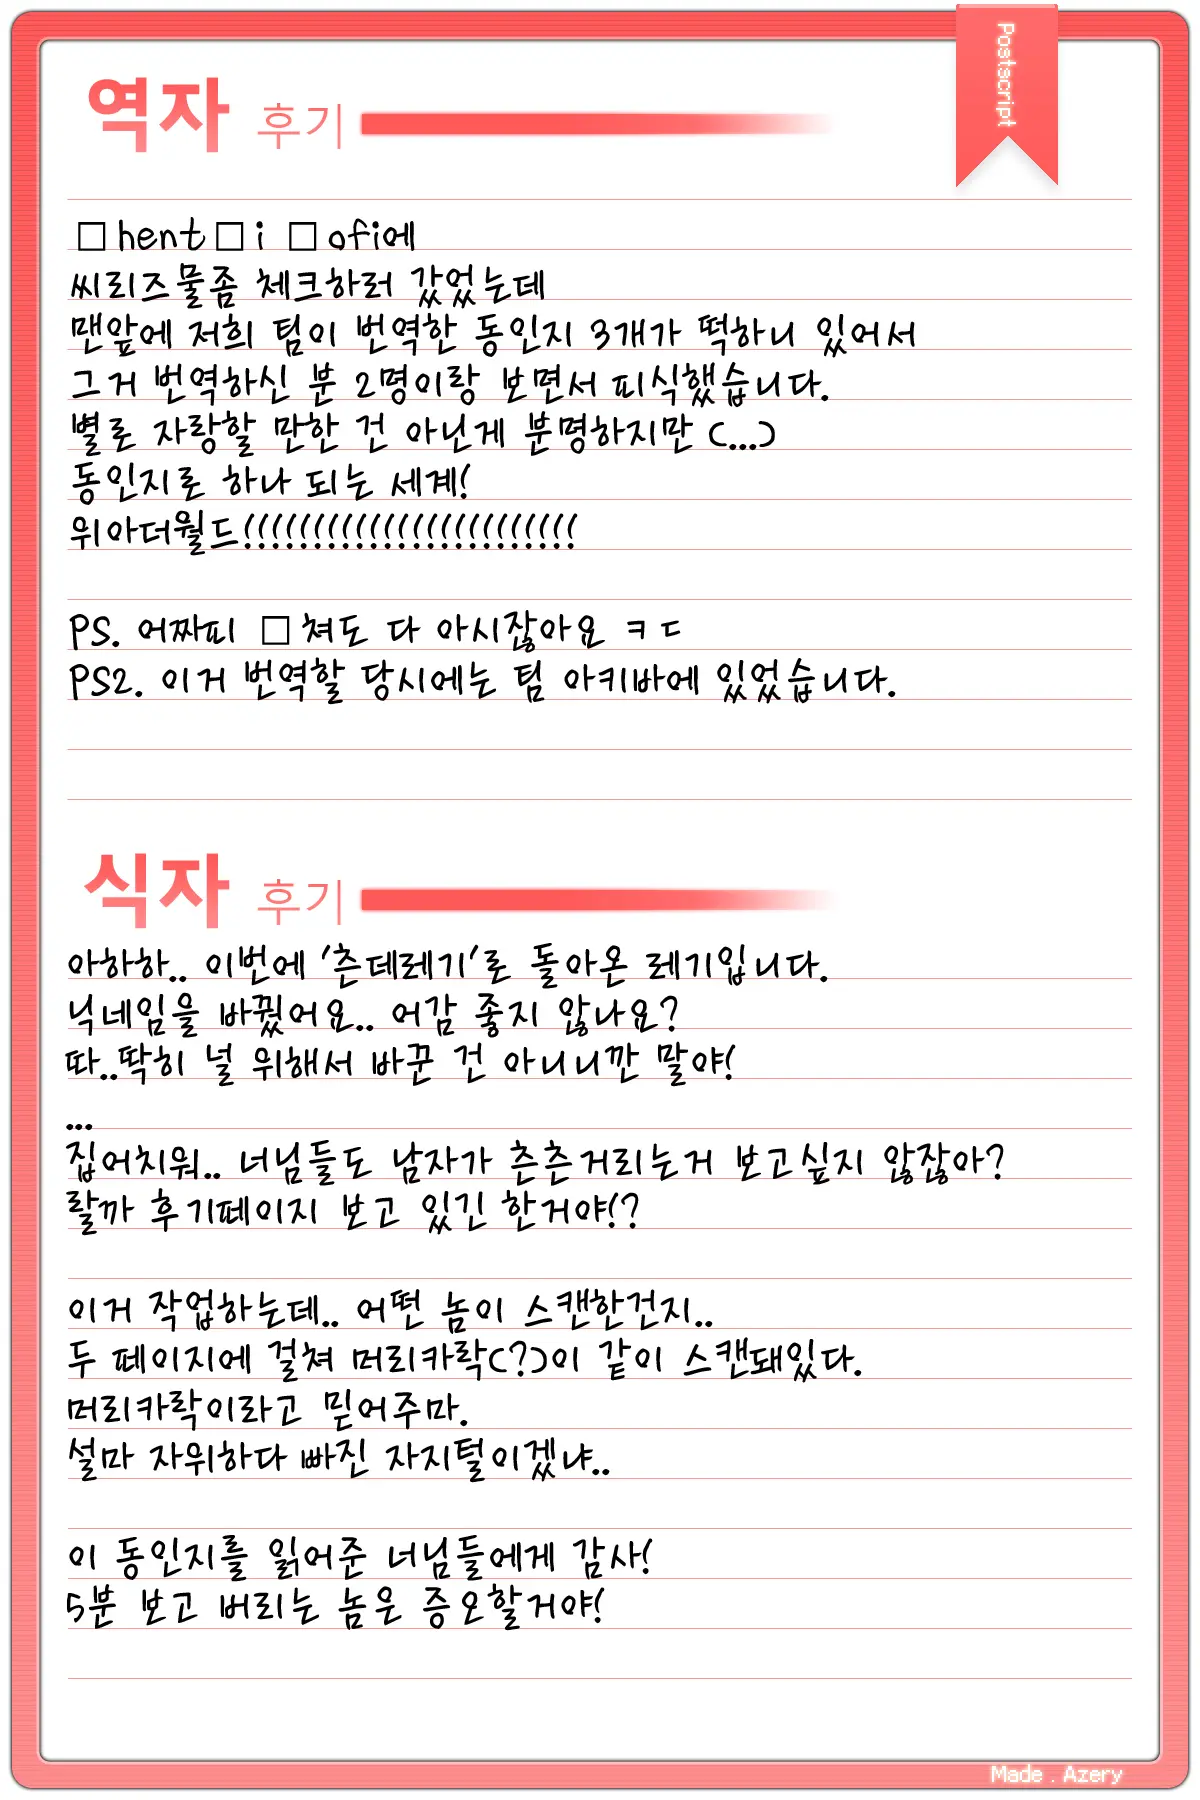 Postscript
역자 후기
□hent□i □ofi에
씨리즈물좀 체크하러 갔었는데
맨앞에 저희 팀이 번역한 동인지 3개가 떡하니 있어서
그거 번역하신 분 2명이랑 보면서 피식했습니다.
별로 자랑할 만한 건 아닌게 분명하지만 (...)
동인지로 하나 되는 세계!
위아더월드!!!!!!!!!!!!!!!!!!!!!!!!
PS. 어짜피 □쳐도 다 아시잖아요 ㅋㄷ
PS2. 이거 번역할 당시에는 팀 아키바에 있었습니다.
식자 후기
아하하.. 이번에 '츤데레기'로 돌아온 레기입니다.
닉네임을 바꿨어요.. 어감 좋지 않나요?
따..딱히 널 위해서 바꾼 건 아니니깐 말야!
...
집어치워.. 너님들도 남자가 츤츤거리는거 보고싶지 않잖아?
랄까 후기페이지 보고 있긴 한거야!?
이거 작업하는데.. 어떤 놈이 스캔한건지..
두 페이지에 걸쳐 머리카락(?)이 같이 스캔돼있다.
머리카락이라고 믿어주마.
설마 자위하다 빠진 자지털이겠냐..
이 동인지를 읽어준 너님들에게 감사!
5분 보고 버리는 놈은 증오할거야!
Made . Azery